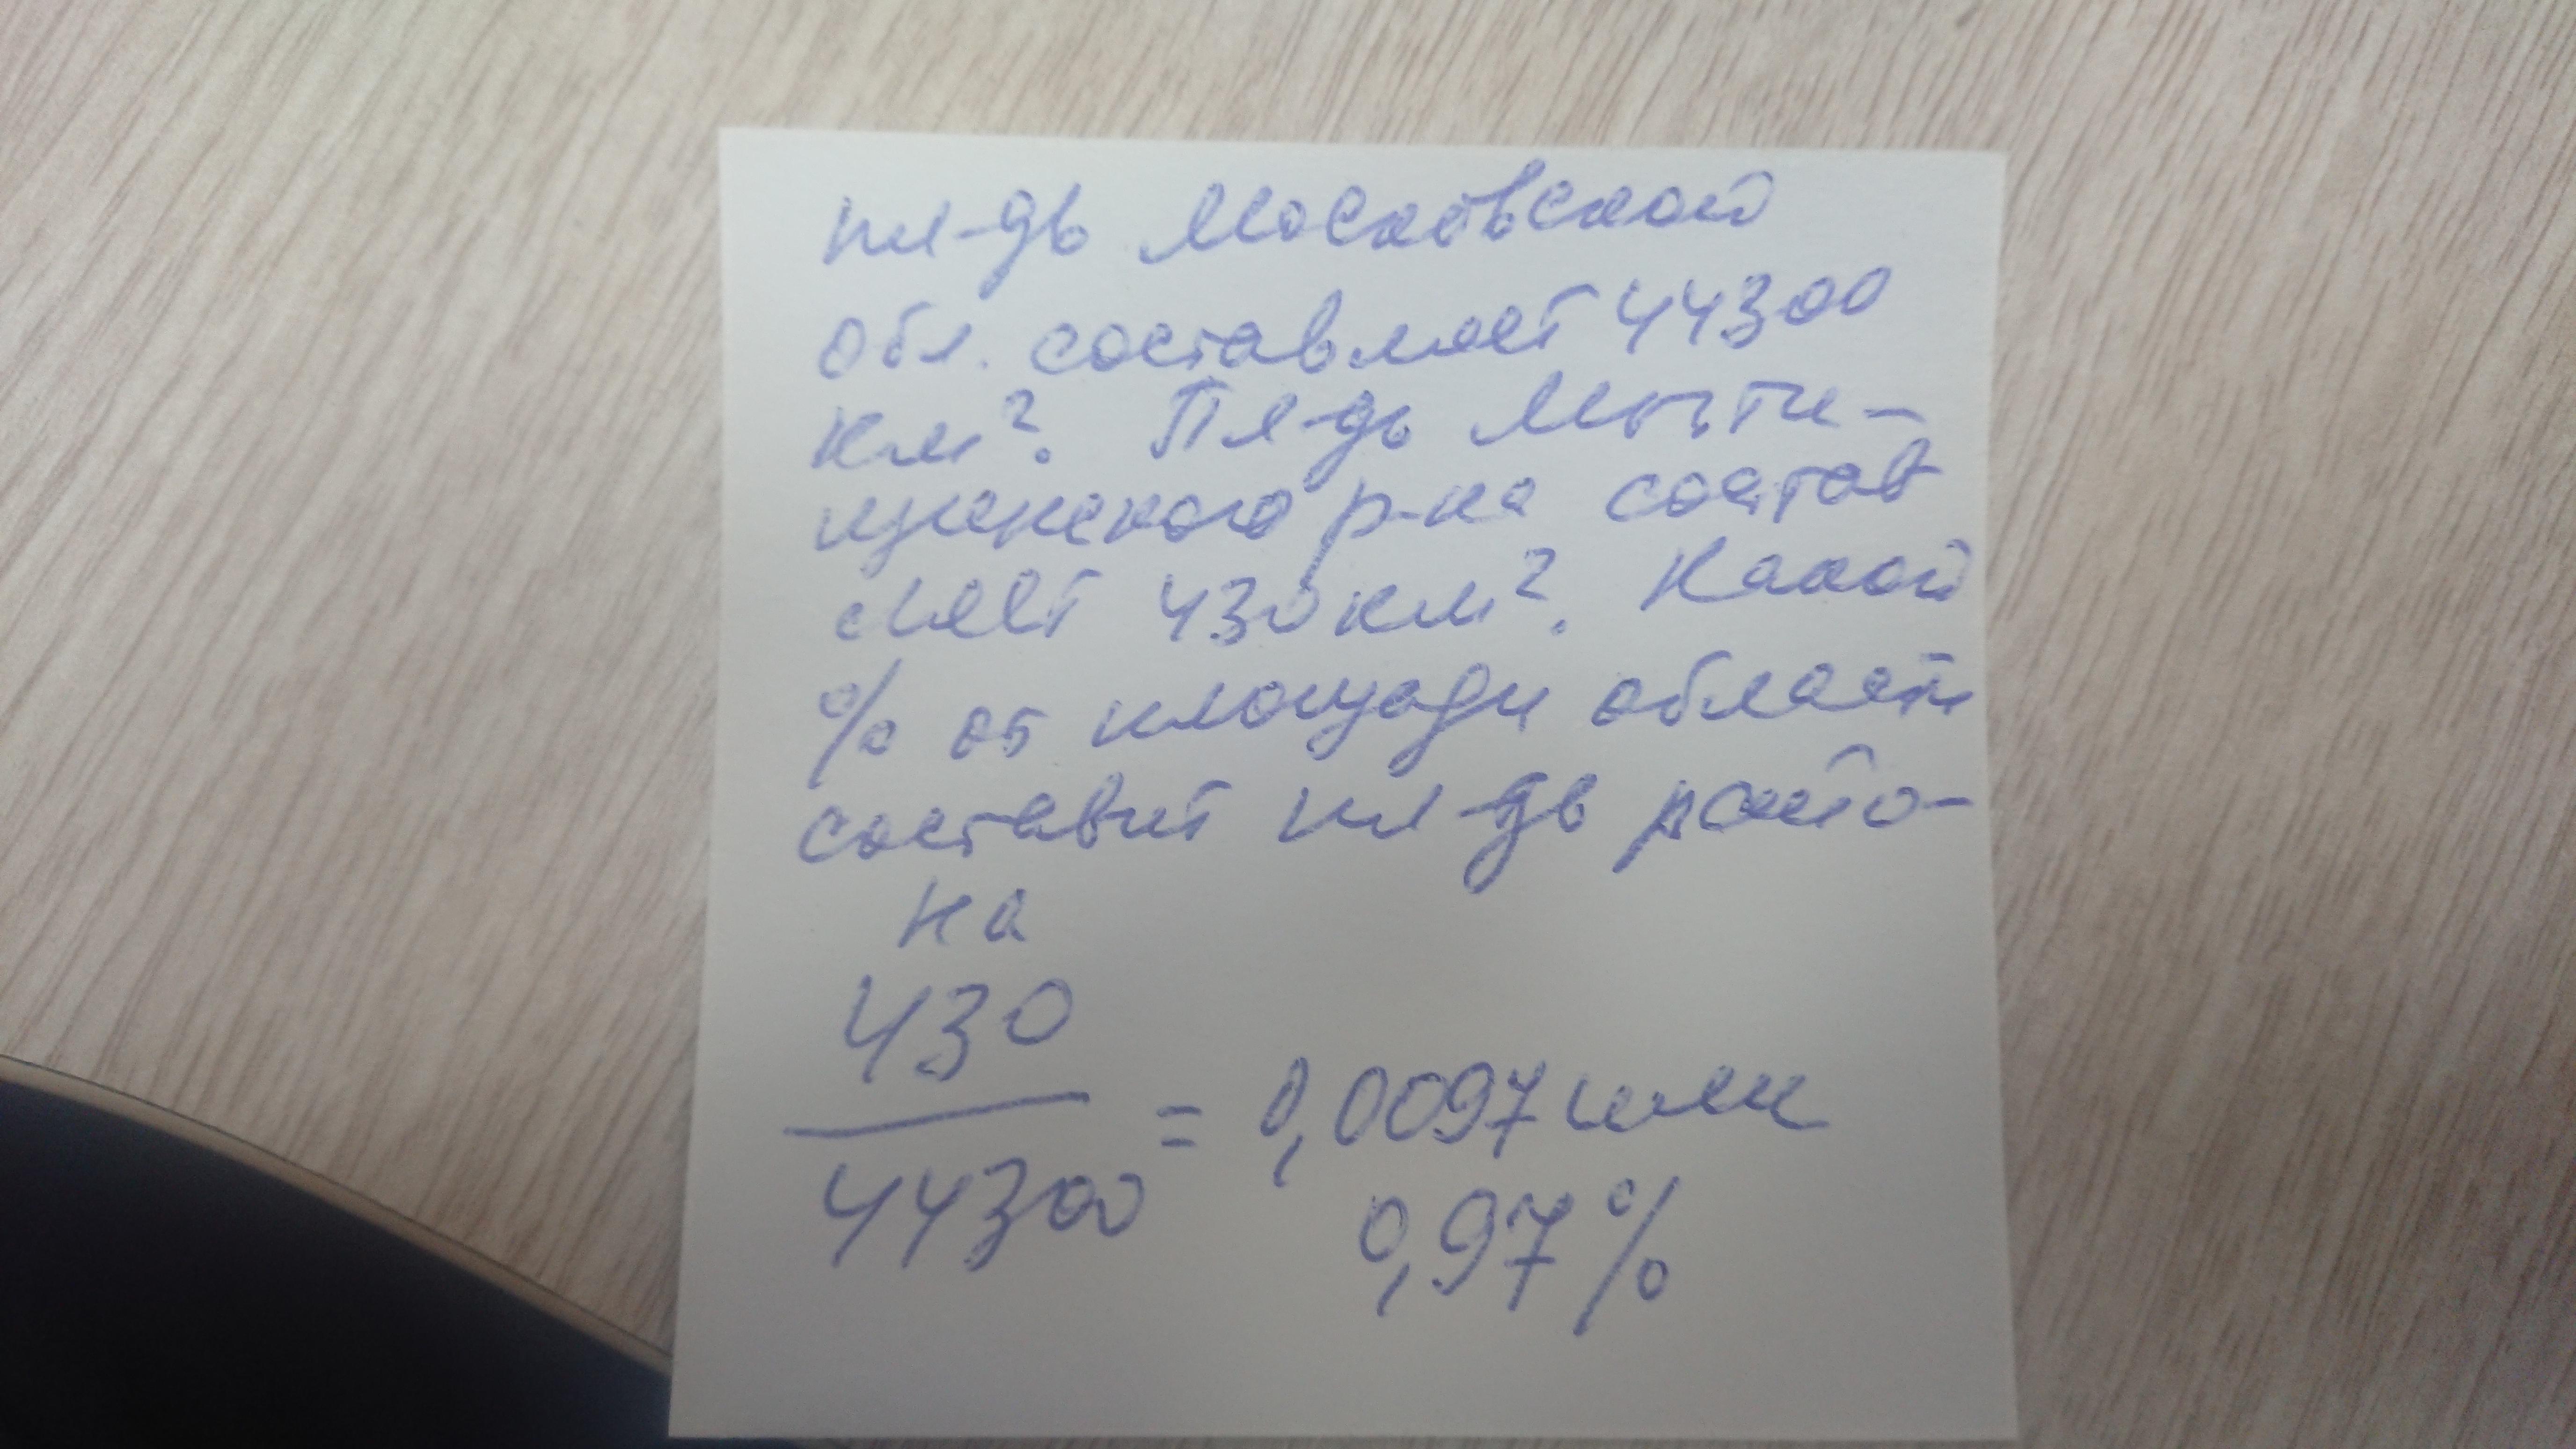 пл-дь Московской
обл. составляет 44300
км². Пл-дь Мыти-
щинского р-на состав
ляет 430 км². Какой
% от площади области
составит пл-дь райо-
на
430
44300
= 0,0097 или
0,97%